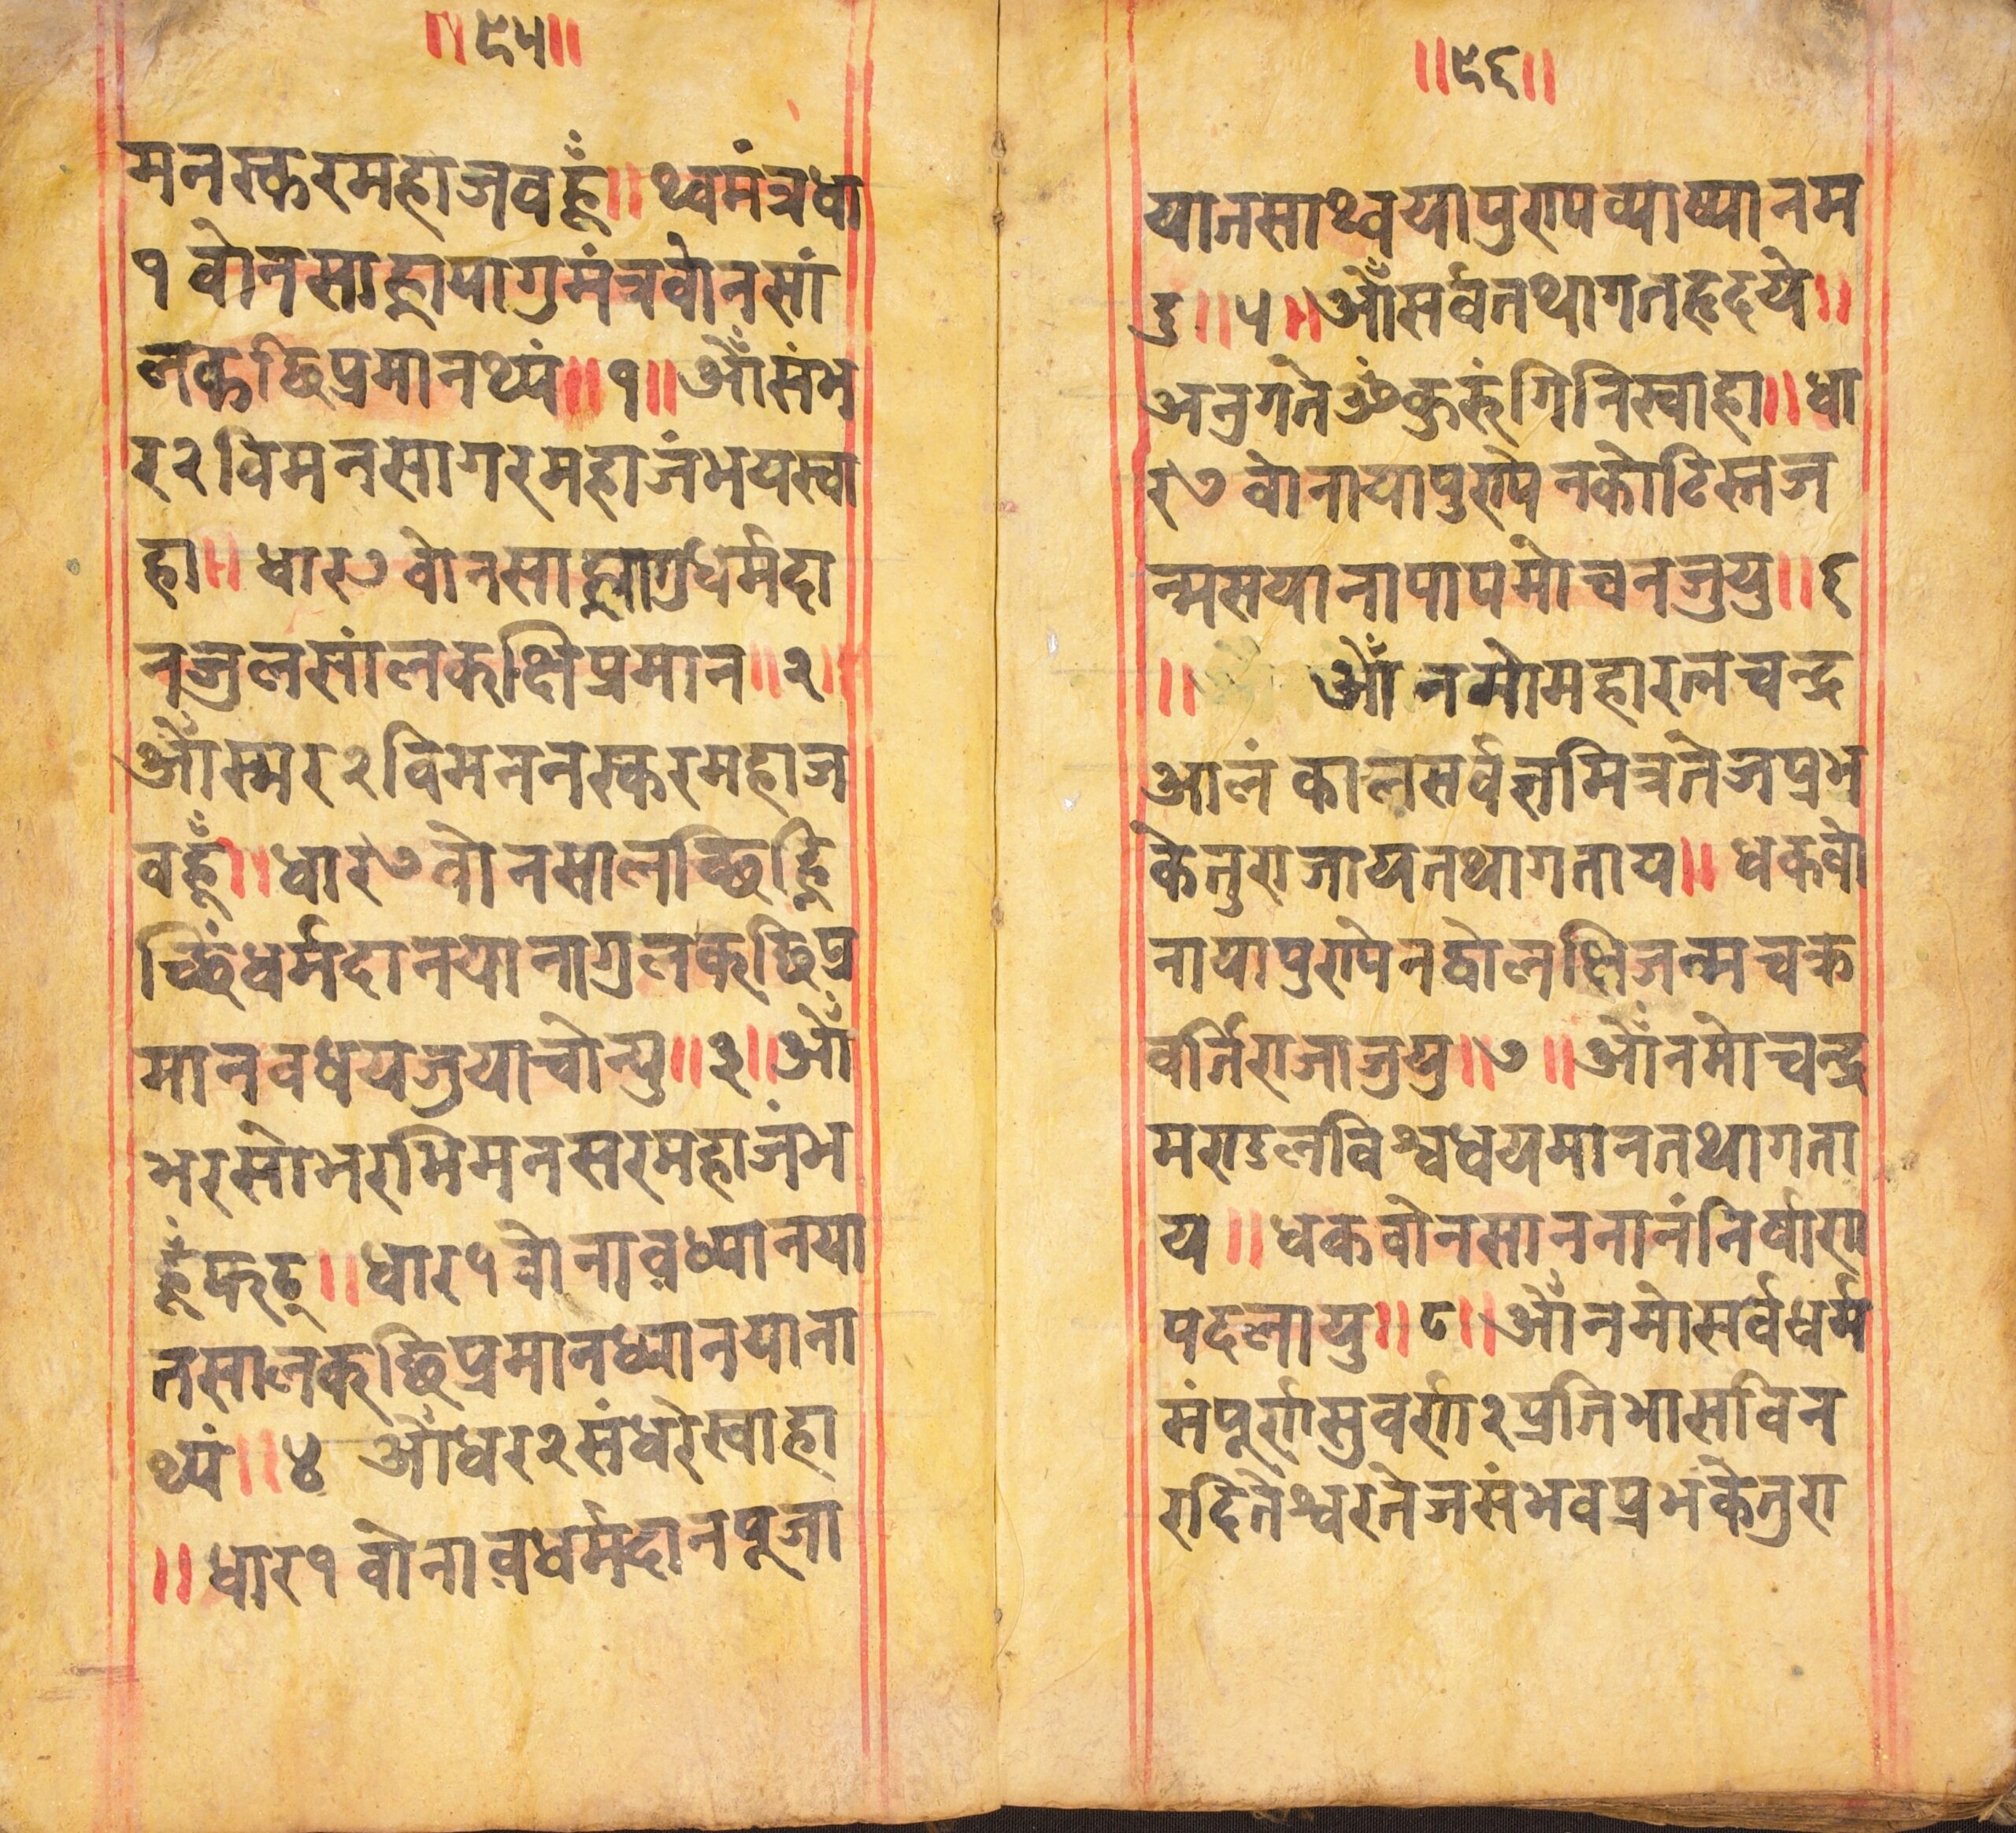 ॥९५॥
मनस्करमहाजवहूँ॥थ्वमंत्रधा
१ वोनसाह्लायागुमंत्रवोनसां
लकछिप्रमानथ्यं॥१॥ओँसंभ
र२विमनसागरमहाजंभयस्वा
हा॥धार७वोनसाह्लागुधर्मदा
नजुलसांलकक्षिप्रमान॥२॥
ओँस्मर२विमननस्करमहाज
वहूँ॥धार७वोनसालच्छिद्धि
च्छिंधर्मदानयानागुलकछिप्र
मानवधयजुयाचोन्यु॥३॥ओँ
भरसोभरभिमनसरमहाजंभ
हूँफट्॥धार५वोनावध्यानया
तसालकछिप्रमानध्यानयाना
थ्यं॥४ ओँधर२संधरेस्वाहा
॥धार१वोनावधर्मदानपूजा
॥९६॥
यातसाथ्वयापुण्यव्याष्यानम
दु॥५॥ओँसर्वतथागतहृदये॥
अनुगतेॐकुरुंगिनिस्वाहा॥धा
र७वोनायापुण्येनकोटिस्तज
न्मसयानापापमोचनजुयु॥६
॥ ओँनमोमहारत्नचन्द्र
आलंकालसर्वज्ञमित्रतेजप्रभ
केतुराजायतथागताय॥धकवो
नायापुण्येनद्वोलक्षिजन्मचक्र
वर्तिराजाजुयु॥७॥ओँनमोचन्द्र
मण्डलविश्वधयमानतथागता
य॥धकवोनसाननानंनिर्वाण
पदलायु॥८॥ओँनमोसर्वधर्म
संपूर्णसुवर्ण२प्रतिभासविन
रदितेश्वरतेजसंभवप्रभकेतुरा